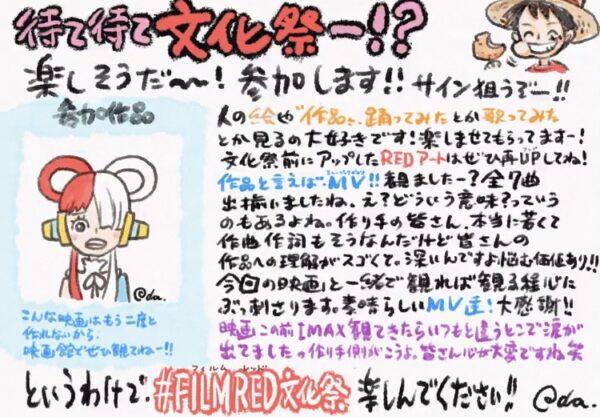 待て待て文化祭ー!?
楽しそうだ〜〜!参加します!!サイン狙うぞー!!
参加作品
@da.
こんな映画はもう二度と
作れないから
映画館でぜひ観てねー!!
人の絵や作品を、踊ってみたとか歌ってみた
とか見るの大好きです!楽しませてもらってますー!
文化祭前にアップしたREDアートはぜひ再UPしてね!
作品と言えば、MV!!観ましたー?全7曲
出揃いましたね、え?どういう意味?っていう
のもあるよね。作り手の皆さん、本当に若くて
作曲作詞もそうなんだけど皆さんの
作品への理解がスゴくて。深いんですよ悩む価値あり!!
今回の映画と一緒で観れば観る程心に
ぶっ刺さります。素晴らしいMV達!大感謝!!
映画この前IMAX観てきたらいつもと違うとこで涙が
出てましたっ作り手側がこうよ。皆さん心が大変ですね笑
フィルム レッド
というわけで #FILMRED文化祭 楽しんでください!! @da.